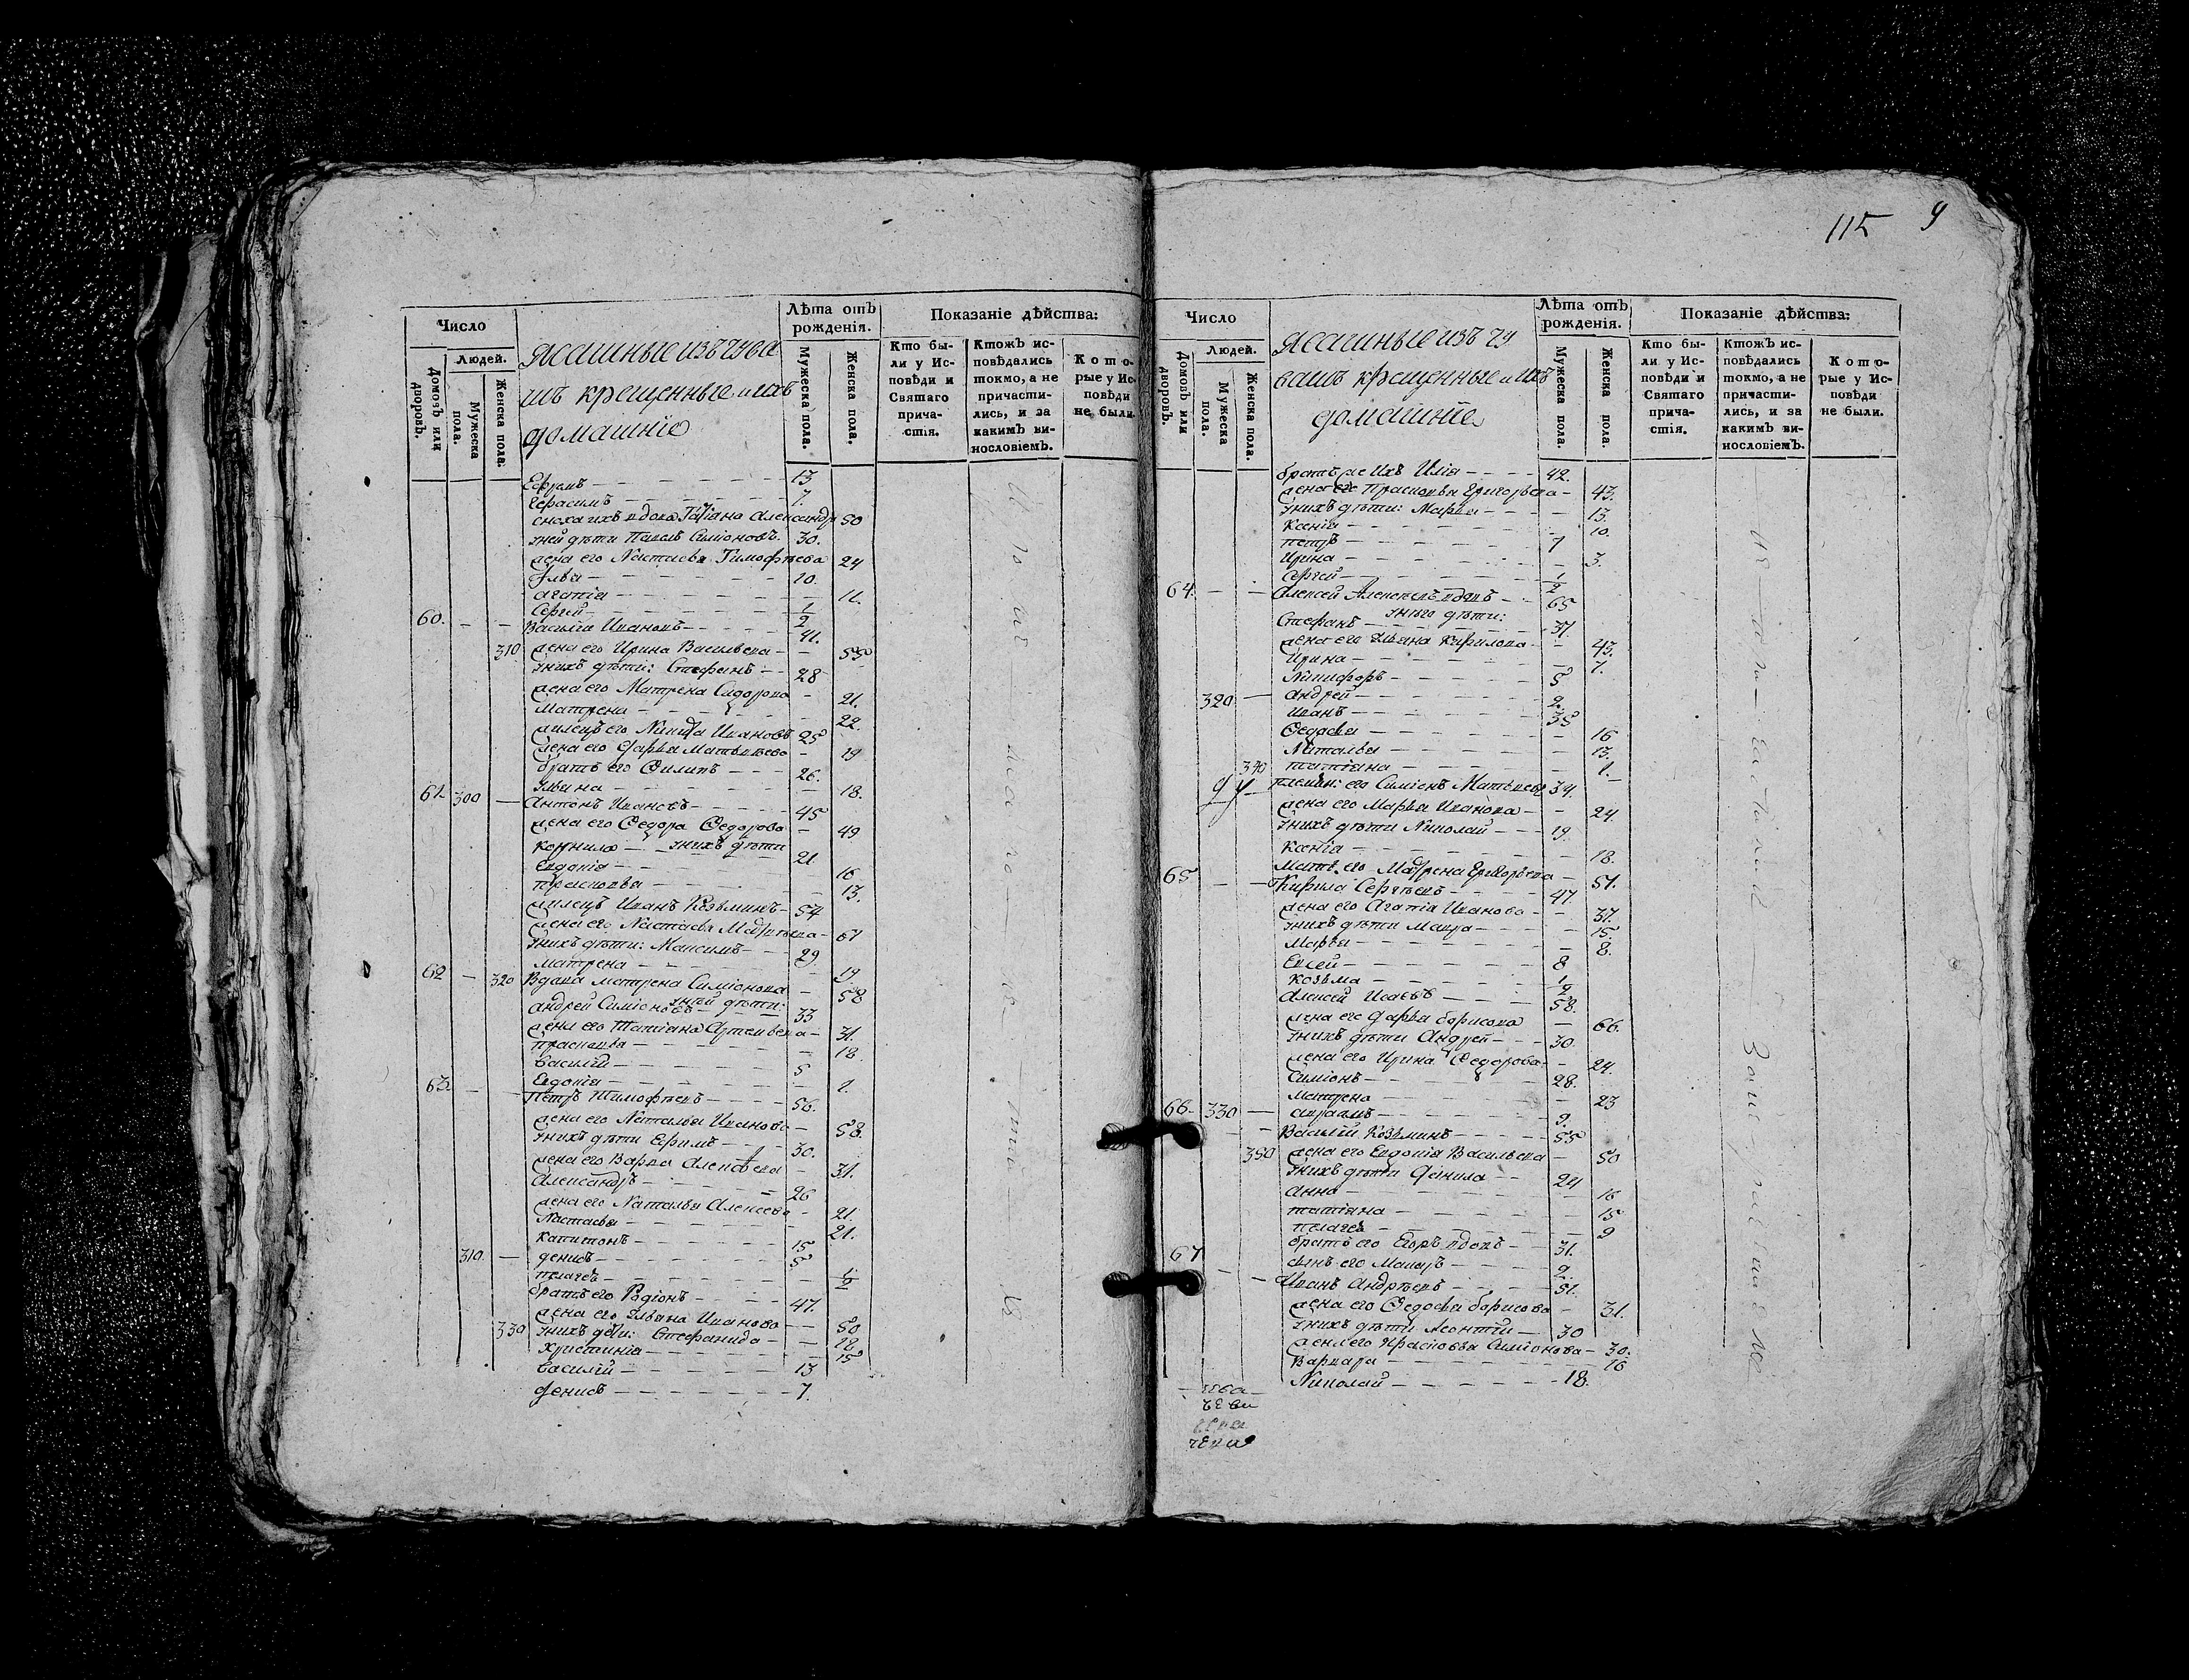 115 9
Число
Людей.
Домовъ или дворовъ.
Мужеска пола.
Женска пола.
Ясашные изъ чува
шъ крещенные и ихъ
домашніе
Лѣта отъ рожденія.
Мужеска пола.
Женска пола.
Показаніе дѣйства:
Кто бы-
ли у Ис-
повѣди и
Святаго
прича-
стія.
Ктожъ ис-
повѣдались
токмо, а не
причасти-
лись, и за
какимъ ви-
нословіемъ.
Кото-
рые у Ис-
повѣди
не были.
Ефремъ 13
Герасимъ 7.
сноха ихъ вдова Татіана Александр 50
у ней дѣти Павелъ Симіоновъ 30.
жена его Настасья Тимофѣева 24
10.
Агапія 11.
Сергей 1/2
60. Василій Ивановъ 41.
310 жена его Ирина Васильева 55
у нихъ дѣти: Стефанъ 28
жена его Матрена Сидорова 21.
Матрена 22.
жилецъ его Никита Ивановъ 25
жена его Дарья Матвѣева 19
братъ его Филипъ 26.
Ульяна 18.
61. 300 Антонъ Ивановъ 45
жена его Федора Федорова 49
у нихъ дѣти
Корнило 21
Евдокія 16
Прасковья 13.
жилецъ Иванъ Козьминъ 54
жена его Настасья 67
у нихъ дѣти: Максимъ 29
Матрена 19
62 320 Вдова Матрена Симіонова 58
у ней дѣти:
Андрей Симіоновъ 33
жена его Татіана Артемьева 31.
Прасковья 18.
Василій 5
Евдокія 1.
63. Петръ Тимофѣевъ 56.
жена его Наталья Иванова 58.
у нихъ дѣти Ефимъ 30.
жена его Варва Алексѣева 31.
Александръ 26
жена его Наталья Алексеева 21.
Настасья 21.
Капитонъ 15
310. Денисъ 5
Пелагея 1/2
братъ его Родіонъ 47.
жена его Ульяна Иванова 50
330 у нихъ дѣти: Степанида 18
Христинія 15
Василій 13
Денисъ 7.
Число
Людей.
Домовъ или дворовъ.
Мужеска пола.
Женска пола.
Ясашные изъ чу
вашъ крещенные и ихъ
домашніе
Лѣта отъ рожденія.
Мужеска пола.
Женска пола.
Показаніе дѣйства:
Кто бы-
ли у Ис-
повѣди и
Святаго
прича-
стія.
Ктожъ ис-
повѣдались
токмо, а не
причасти-
лись, и за
какимъ ви-
нословіемъ.
Кото-
рые у Ис-
повѣди
не были.
братъ же ихъ Илія 42.
жена его Прасковья Григорьева 43.
у нихъ дѣти: Марья 13.
Ксенія 10.
Петръ 7
Ирина 3.
Сергей 1/2
64. Алексей Алексеевъ вдовъ 65
у него дѣти:
Стефанъ 37.
жена его Ульяна Кирилова 43.
Ирина 7.
Никифоръ 5
320 Андрей 2.
Иванъ 35
Федосья 16
Наталья 13.
340 Татіана 1.
племян: его Симіонъ Матвѣевъ 34.
жена его Марья Иванова 24.
у нихъ дѣти Николай 19.
Ксенія 18.
Мать его Матрена Григорьева 51.
65 Кирила Сергѣевъ 47.
жена его Агапія Иванова 37.
у нихъ дѣти Мавра 15.
Марья 8.
Евсей 8
Козьма 1/2
Алексей Исаевъ 58.
жена его Дарья Борисова 66.
у нихъ дѣти Андрей 30.
жена его Ирина Федорова 24.
Симіонъ 28.
Матрена 23
66. 330 Авраамъ 9.
Василій Козьминъ 55
350 жена его Евдокія Васильева 50
у нихъ дѣти Данила 24
Анна 16
Татіяна 15
Пелагея 9
братъ его Егоръ вдовъ 31.
сынъ его Макаръ 9.
67 Иванъ Андрѣевъ 51.
жена его Федосья Борисова 31.
у нихъ дѣти Леонтій 30
жена его Прасковья Симіонова 30.
Варвара 16
Николай 18.